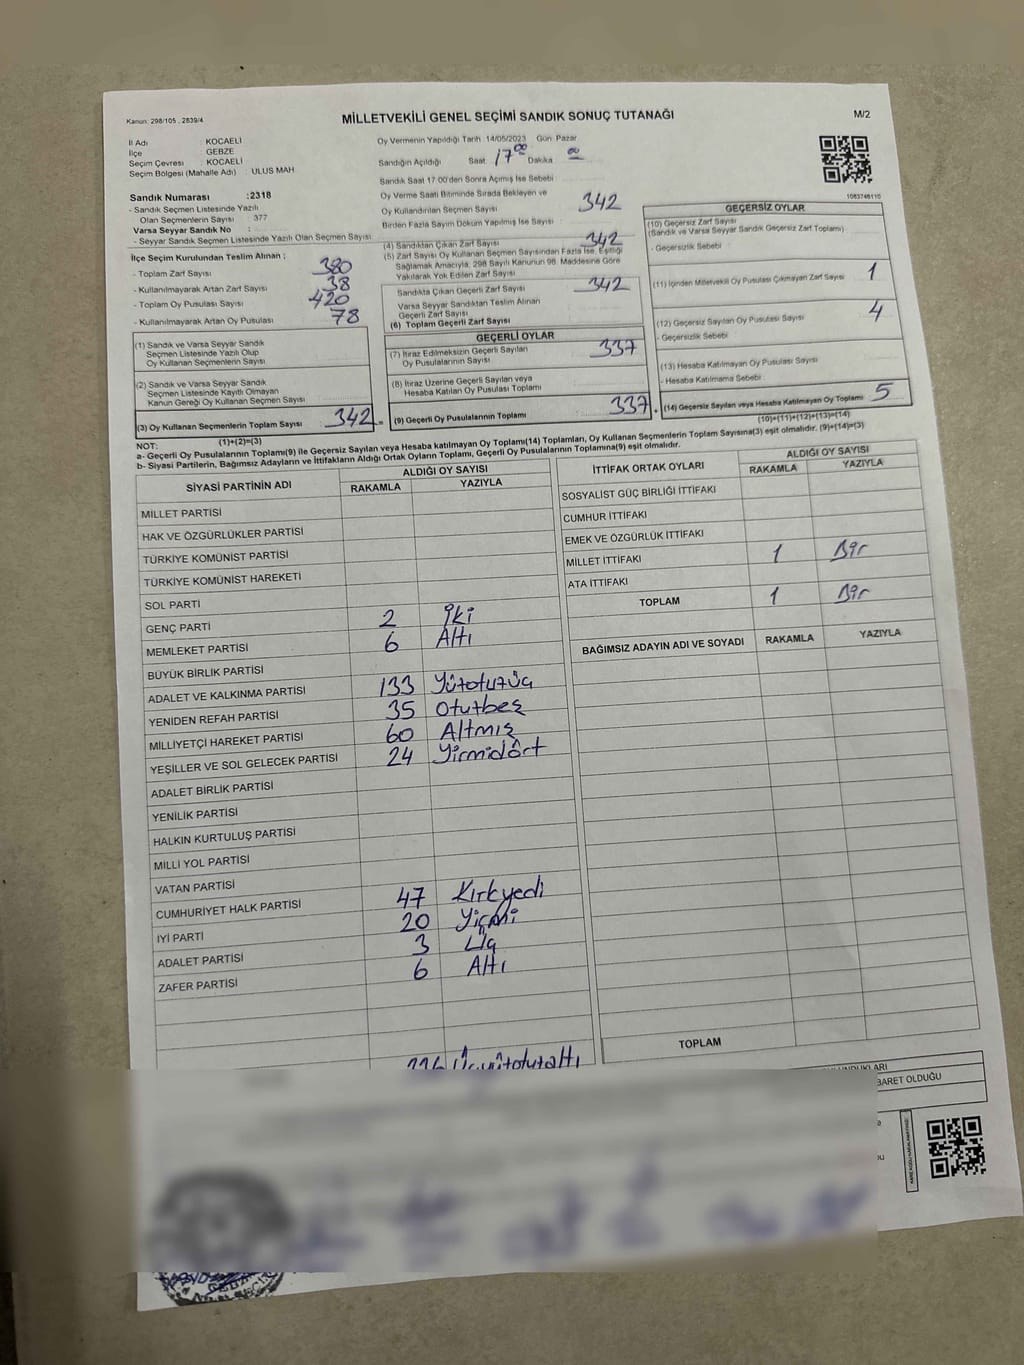 Kanun: 298/105 , 2839/4
MİLLETVEKİLİ GENEL SEÇİMİ SANDIK SONUÇ TUTANAĞI
M/2
İl Adı : KOCAELİ
İlçe : GEBZE
Seçim Çevresi : KOCAELİ
Seçim Bölgesi (Mahalle Adı) ULUS MAH
Sandık Numarası :2318
- Sandık Seçmen Listesinde Yazılı
Olan Seçmenlerin Sayısı 377
Varsa Seyyar Sandık No :
- Seyyar Sandık Seçmen Listesinde Yazılı Olan Seçmen Sayısı
İlçe Seçim Kurulundan Teslim Alınan ;
- Toplam Zarf Sayısı 380
- Kullanılmayarak Artan Zarf Sayısı 38
- Toplam Oy Pusulası Sayısı 420
- Kullanılmayarak Artan Oy Pusulası 78
(1) Sandık ve Varsa Seyyar Sandık
Seçmen Listesinde Yazılı Olup
Oy Kullanan Seçmenlerin Sayısı
(2) Sandık ve Varsa Seyyar Sandık
Seçmen Listesinde Kayıtlı Olmayan
Kanun Gereği Oy Kullanan Seçmen Sayısı
(3) Oy Kullanan Seçmenlerin Toplam Sayısı 342 =
(1)+(2)=(3)
Oy Vermenin Yapıldığı Tarih 14/05/2023 Gün Pazar
Sandığın Açıldığı Saat 17 00 Dakika 00
Sandık Saat 17:00'den Sonra Açılmış İse Sebebi
Oy Verme Saati Bitiminde Sırada Bekleyen ve
Oy Kullandırılan Seçmen Sayısı 342
Birden Fazla Sayım Döküm Yapılmış İse Sayısı
(4) Sandıktan Çıkan Zarf Sayısı 342
(5) Zarf Sayısı Oy Kullanan Seçmen Sayısından Fazla İse, Eşitliği
Sağlamak Amacıyla, 298 Sayılı Kanunun 98. Maddesine Göre
Yakılarak Yok Edilen Zarf Sayısı
Sandıkta Çıkan Geçerli Zarf Sayısı 342
Varsa Seyyar Sandıktan Teslim Alınan
Geçerli Zarf Sayısı
(6) Toplam Geçerli Zarf Sayısı
GEÇERLİ OYLAR
(7) İtiraz Edilmeksizin Geçerli Sayılan
Oy Pusulalarının Sayısı 337
(8) İtiraz Üzerine Geçerli Sayılan veya
Hesaba Katılan Oy Pusulası Toplamı
(9) Geçerli Oy Pusulalarının Toplamı 337 +
1083746110
GEÇERSİZ OYLAR
(10) Geçersiz Zarf Sayısı
(Sandık ve Varsa Seyyar Sandık Geçersiz Zarf Toplamı)
- Geçersizlik Sebebi
(11) İçinden Milletvekili Oy Pusulası Çıkmayan Zarf Sayısı 1
(12) Geçersiz Sayılan Oy Pusulası Sayısı 4
- Geçersizlik Sebebi
(13) Hesaba Katılmayan Oy Pusulası Sayısı
- Hesaba Katılmama Sebebi
(14) Geçersiz Sayılan veya Hesaba Katılmayan Oy Toplamı 5
(10)+(11)+(12)+(13)=(14)
NOT:
a- Geçerli Oy Pusulalarının Toplamı(9) ile Geçersiz Sayılan veya Hesaba katılmayan Oy Toplamı(14) Toplamları, Oy Kullanan Seçmenlerin Toplam Sayısına(3) eşit olmalıdır. (9)+(14)=(3)
b- Siyasi Partilerin, Bağımsız Adayların ve İttifakların Aldığı Ortak Oyların Toplamı, Geçerli Oy Pusulalarının Toplamına(9) eşit olmalıdır.
SİYASİ PARTİNİN ADI
ALDIĞI OY SAYISI
RAKAMLA YAZIYLA
MİLLET PARTİSİ
HAK VE ÖZGÜRLÜKLER PARTİSİ
TÜRKİYE KOMÜNİST PARTİSİ
TÜRKİYE KOMÜNİST HAREKETİ
SOL PARTİ
GENÇ PARTİ 2 İki
MEMLEKET PARTİSİ 6 Altı
BÜYÜK BİRLİK PARTİSİ
ADALET VE KALKINMA PARTİSİ 133 Yüzotuzüç
YENİDEN REFAH PARTİSİ 35 Otuzbeş
MİLLİYETÇİ HAREKET PARTİSİ 60 Altmış
YEŞİLLER VE SOL GELECEK PARTİSİ 24 Yirmidört
ADALET BİRLİK PARTİSİ
YENİLİK PARTİSİ
HALKIN KURTULUŞ PARTİSİ
MİLLİ YOL PARTİSİ
VATAN PARTİSİ
CUMHURİYET HALK PARTİSİ 47 Kırkyedi
İYİ PARTİ 20 Yirmi
ADALET PARTİSİ 3 Üç
ZAFER PARTİSİ 6 Altı
336 Üçyüzotuzaltı
İTTİFAK ORTAK OYLARI
ALDIĞI OY SAYISI
RAKAMLA YAZIYLA
SOSYALİST GÜÇ BİRLİĞİ İTTİFAKI
CUMHUR İTTİFAKI
EMEK VE ÖZGÜRLÜK İTTİFAKI
MİLLET İTTİFAKI 1 Bir
ATA İTTİFAKI
TOPLAM 1 Bir
BAĞIMSIZ ADAYIN ADI VE SOYADI RAKAMLA YAZIYLA
TOPLAM
BARET OLDUĞU